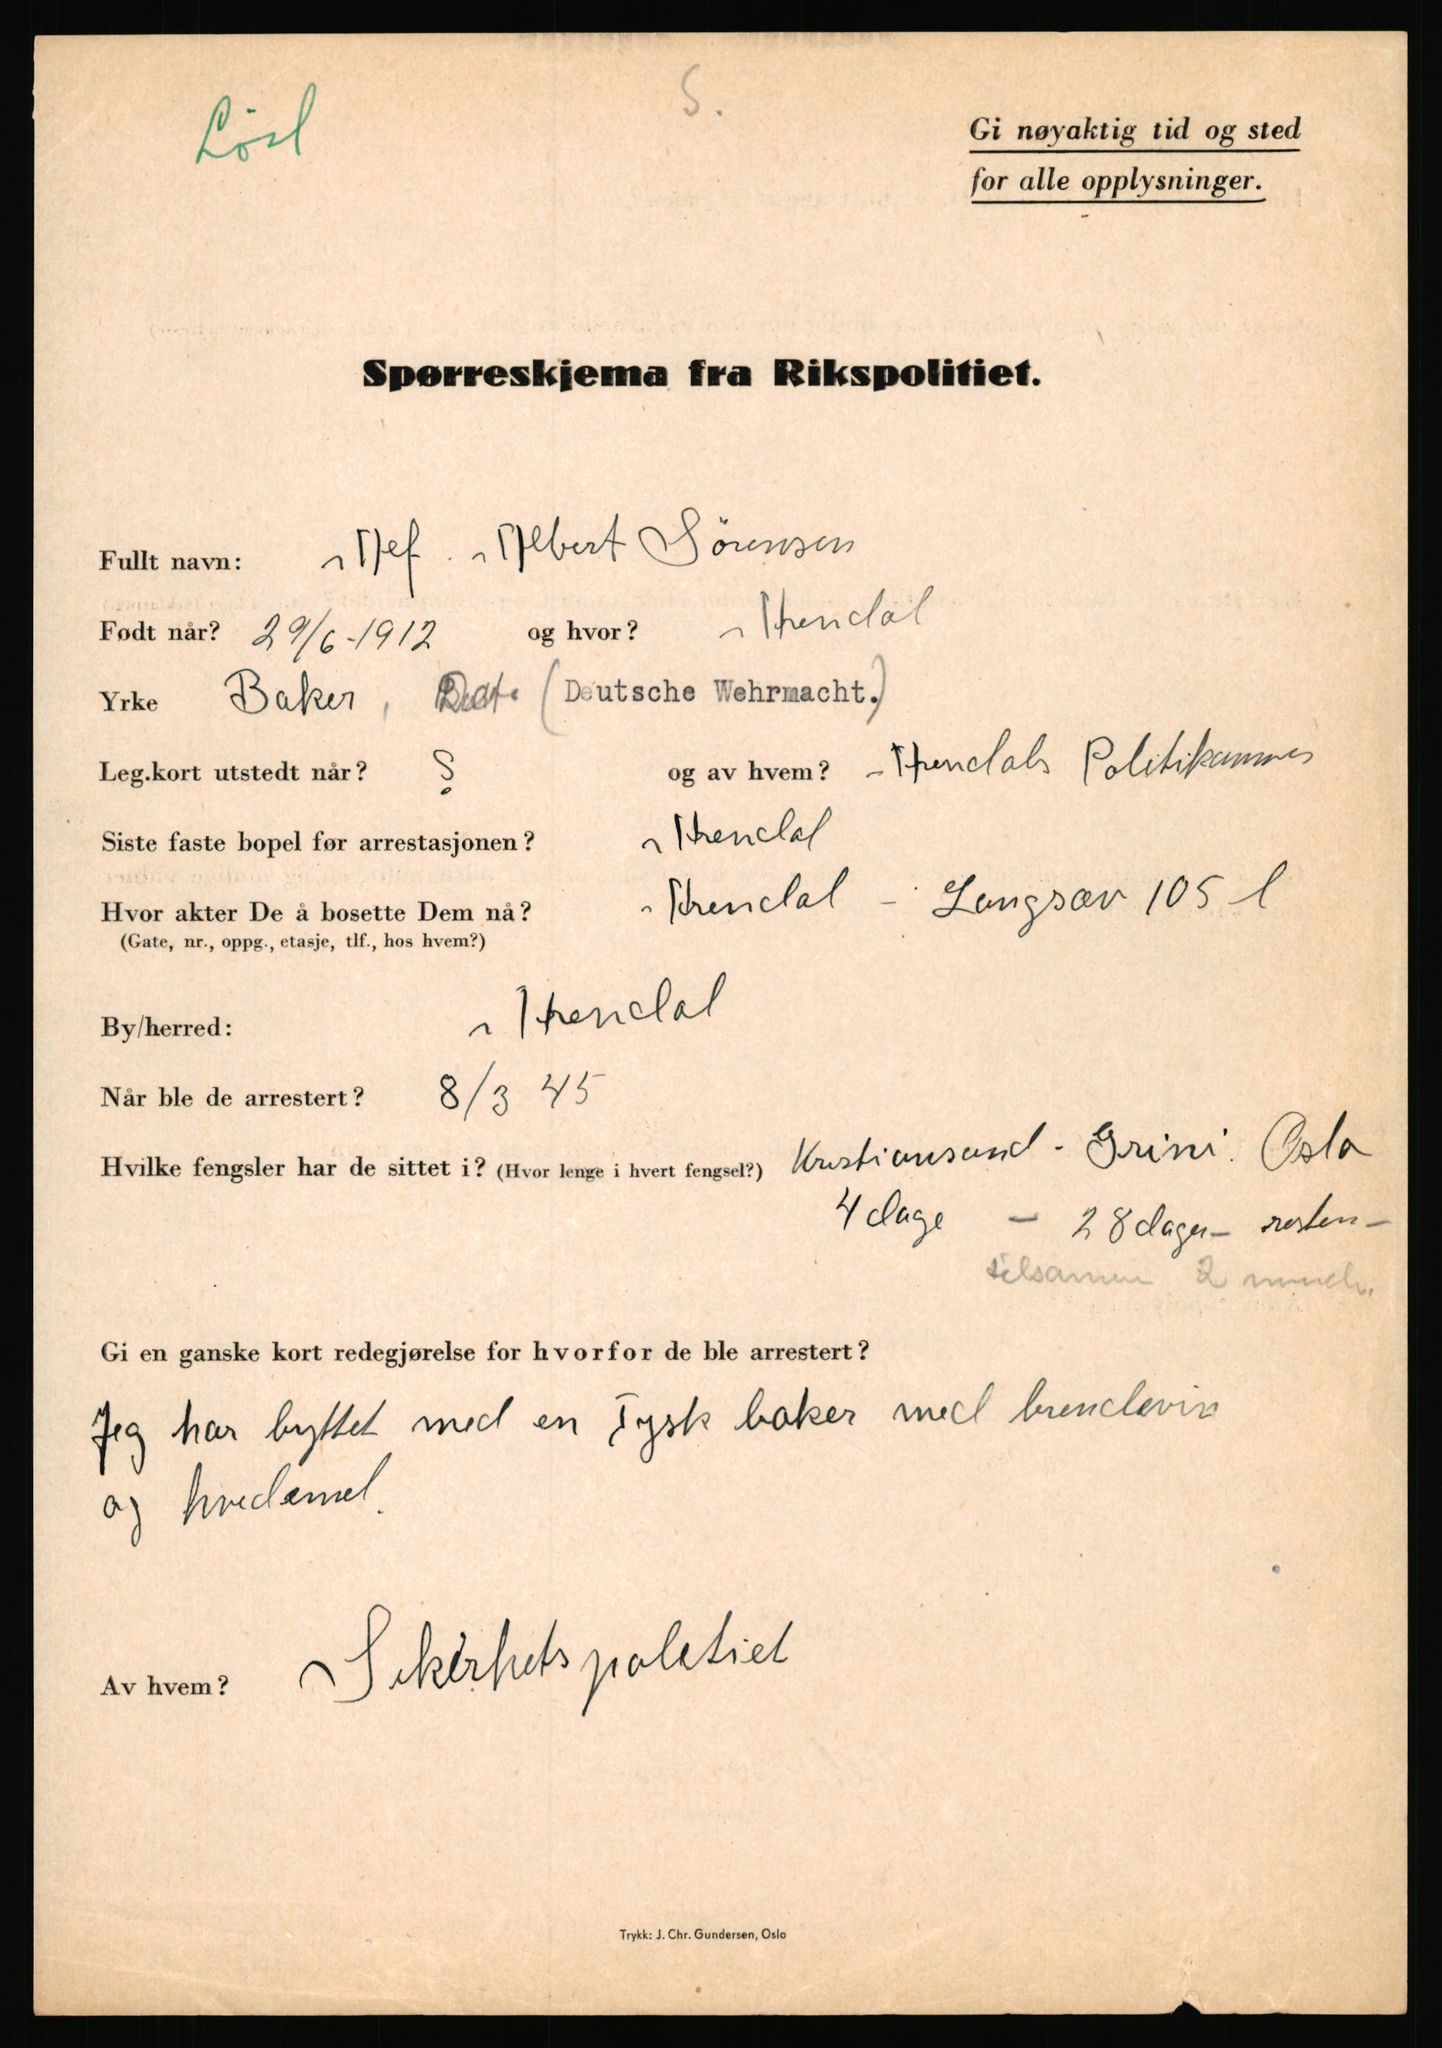 Lösl
S.
Gi nøyaktig tid og sted
for alle opplysninger.
Spørreskjema fra Rikspolitiet.
Fullt navn: Alf. Albert Sörensen
Født når? 29/6-1912 og hvor? Arendal
Yrke Baker, (Deutsche Wehrmacht.)
Leg.kort utstedt når? ? og av hvem? Arendals Politikammer
Siste faste bopel før arrestasjonen? Arendal
Hvor akter De å bosette Dem nå? Arendal - Langsæv 105 l
(Gate, nr., oppg., etasje, tlf., hos hvem?)
By/herred: Arendal
Når ble de arrestert? 8/3 45
Hvilke fengsler har de sittet i? (Hvor lenge i hvert fengsel?) Kristiansand - Grini. Oslo
4 dage - 28 dager - resten -
tilsamen 2 mndr.
Gi en ganske kort redegjørelse for hvorfor de ble arrestert?
Jeg har byttet med en Tysk baker med brendevin
og hvedemel.
Av hvem? Sikerhetspolitiet
Trykk: J. Chr. Gundersen, Oslo